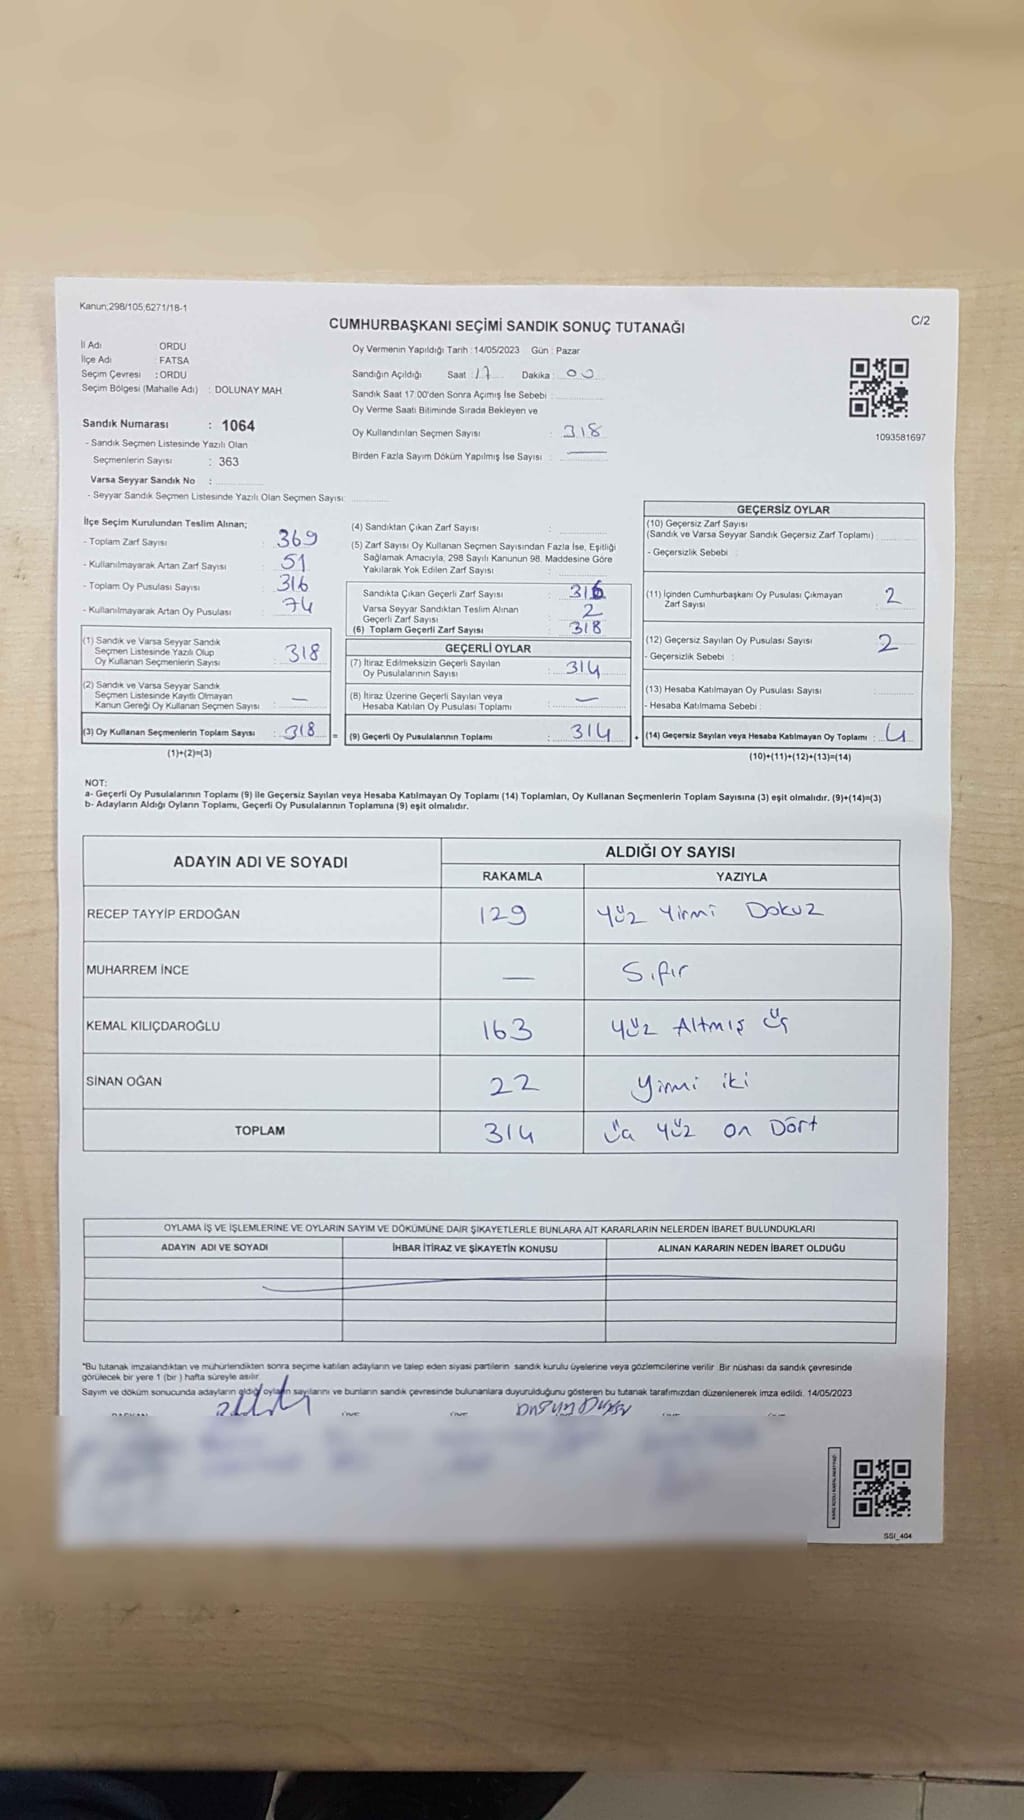 Kanun;298/105;6271/18-1
C/2
CUMHURBAŞKANI SEÇİMİ SANDIK SONUÇ TUTANAĞI
İl Adı : ORDU
İlçe Adı : FATSA
Seçim Çevresi : ORDU
Seçim Bölgesi (Mahalle Adı) : DOLUNAY MAH.
Sandık Numarası : 1064
- Sandık Seçmen Listesinde Yazılı Olan
Seçmenlerin Sayısı : 363
Varsa Seyyar Sandık No :
- Seyyar Sandık Seçmen Listesinde Yazılı Olan Seçmen Sayısı:
Oy Vermenin Yapıldığı Tarih :14/05/2023 Gün : Pazar
Sandığın Açıldığı Saat : 17 Dakika : 00
Sandık Saat 17.00'den Sonra Açılmış İse Sebebi :
Oy Verme Saati Bitiminde Sırada Bekleyen ve
Oy Kullandırılan Seçmen Sayısı : 318
Birden Fazla Sayım Döküm Yapılmış İse Sayısı : —
1093581697
İlçe Seçim Kurulundan Teslim Alınan;
- Toplam Zarf Sayısı : 369
- Kullanılmayarak Artan Zarf Sayısı : 51
- Toplam Oy Pusulası Sayısı : 316
- Kullanılmayarak Artan Oy Pusulası : 74
(1) Sandık ve Varsa Seyyar Sandık
Seçmen Listesinde Yazılı Olup
Oy Kullanan Seçmenlerin Sayısı : 318
(2) Sandık ve Varsa Seyyar Sandık
Seçmen Listesinde Kayıtlı Olmayan
Kanun Gereği Oy Kullanan Seçmen Sayısı : —
(3) Oy Kullanan Seçmenlerin Toplam Sayısı : 318 =
(1)+(2)=(3)
(4) Sandıktan Çıkan Zarf Sayısı :
(5) Zarf Sayısı Oy Kullanan Seçmen Sayısından Fazla İse, Eşitliği
Sağlamak Amacıyla, 298 Sayılı Kanunun 98. Maddesine Göre
Yakılarak Yok Edilen Zarf Sayısı :
Sandıkta Çıkan Geçerli Zarf Sayısı : 316
Varsa Seyyar Sandıktan Teslim Alınan
Geçerli Zarf Sayısı : 2
(6) Toplam Geçerli Zarf Sayısı : 318
GEÇERLİ OYLAR
(7) İtiraz Edilmeksizin Geçerli Sayılan
Oy Pusulalarının Sayısı : 314
(8) İtiraz Üzerine Geçerli Sayılan veya
Hesaba Katılan Oy Pusulası Toplamı : —
(9) Geçerli Oy Pusulalarının Toplamı : 314 +
GEÇERSİZ OYLAR
(10) Geçersiz Zarf Sayısı
(Sandık ve Varsa Seyyar Sandık Geçersiz Zarf Toplamı) :
- Geçersizlik Sebebi :
(11) İçinden Cumhurbaşkanı Oy Pusulası Çıkmayan
Zarf Sayısı : 2
(12) Geçersiz Sayılan Oy Pusulası Sayısı : 2
- Geçersizlik Sebebi :
(13) Hesaba Katılmayan Oy Pusulası Sayısı :
- Hesaba Katılmama Sebebi :
(14) Geçersiz Sayılan veya Hesaba Katılmayan Oy Toplamı : 4
(10)+(11)+(12)+(13)=(14)
NOT:
a- Geçerli Oy Pusulalarının Toplamı (9) ile Geçersiz Sayılan veya Hesaba Katılmayan Oy Toplamı (14) Toplamları, Oy Kullanan Seçmenlerin Toplam Sayısına (3) eşit olmalıdır. (9)+(14)=(3)
b- Adayların Aldığı Oyların Toplamı, Geçerli Oy Pusulalarının Toplamına (9) eşit olmalıdır.
ADAYIN ADI VE SOYADI
ALDIĞI OY SAYISI
RAKAMLA YAZIYLA
RECEP TAYYİP ERDOĞAN 129 Yüz Yirmi Dokuz
MUHARREM İNCE — Sıfır
KEMAL KILIÇDAROĞLU 163 Yüz Altmış Üç
SİNAN OĞAN 22 Yirmi iki
TOPLAM 314 Üç Yüz On Dört
OYLAMA İŞ VE İŞLEMLERİNE VE OYLARIN SAYIM VE DÖKÜMÜNE DAİR ŞİKAYETLERLE BUNLARA AİT KARARLARIN NELERDEN İBARET BULUNDUKLARI
ADAYIN ADI VE SOYADI İHBAR İTİRAZ VE ŞİKAYETİN KONUSU ALINAN KARARIN NEDEN İBARET OLDUĞU
"Bu tutanak imzalandıktan ve mühürlendikten sonra seçime katılan adayların ve talep eden siyasi partilerin sandık kurulu üyelerine veya gözlemcilerine verilir. Bir nüshası da sandık çevresinde
görülecek bir yere 1 (bir ) hafta süreyle asılır.
Sayım ve döküm sonucunda adayların aldığı oyların sayılarını ve bunların sandık çevresinde bulunanlara duyurulduğunu gösteren bu tutanak tarafımızdan düzenlenerek imza edildi. 14/05/2023
SSİ_404